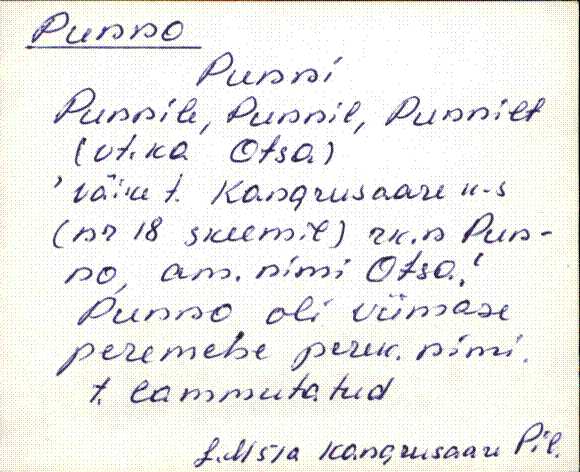 Punno
Punni
Punnile, Punnil, Punnilt
(vt. ka Otsa)
'väike t. Kangrusaare k-s
(nr 18 skeemil) rk.n Pun-
no, am. nimi Otsa.'
Punno oli viimase
peremehe perek. nimi.
t. lammutatud
Kangrusaare Pil.